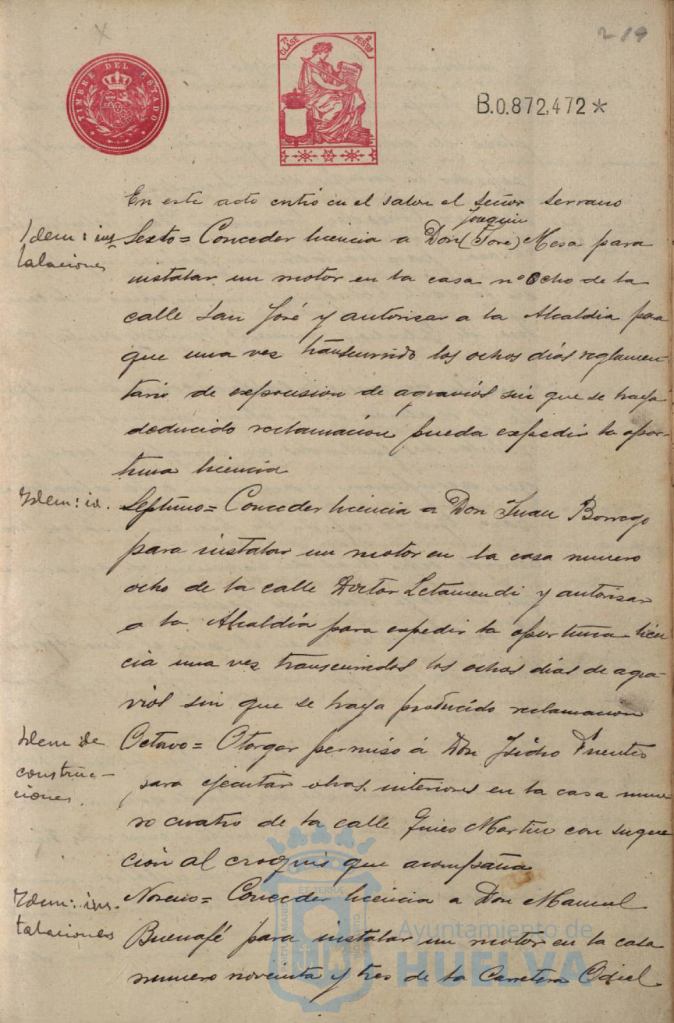 219
TIMBRE DEL ESTADO
7ª CLASE 2 PESETAS
B.0.872,472*
En este acto entró en el salon el señor Serrano
Idem: ins
talaciones
Sexto= Conceder licencia a Don (José) Mesa para
Joaquin
instalar un motor en la casa nº ocho de la
calle San José y autorisar a la Alcaldia para
que una vez transcurrido los ochos días reglamen-
tario de exposicion de agravios sin que se haya
deducido reclamación pueda expedir la opor-
tuna licencia
Idem: id.
Septimo= Conceder licencia a Don Juan Borrego
para instalar un motor en la casa numero
ocho de la calle Doctor Letamendi y autorisar
a la Alcaldía para expedir la oportuna licen
cia una vez transcurridos los ochos dias de agra-
vios sin que se haya producido reclamacion
Idem de
construc-
ciones.
Octavo= Otorgar permiso á Don Isidro Fuentes
para ejecutar obras interiores en la casa nume
ro cuatro de la calle Gines Martin con sugec
ción al croquis que acompaña
Idem: ins-
talaciones
Noveno= Conceder licencia a Don Manuel
Buenafé para instalar un motor en la casa
numero noventa y tres de la Carretera Odiel
Ayuntamiento de
HUELVA